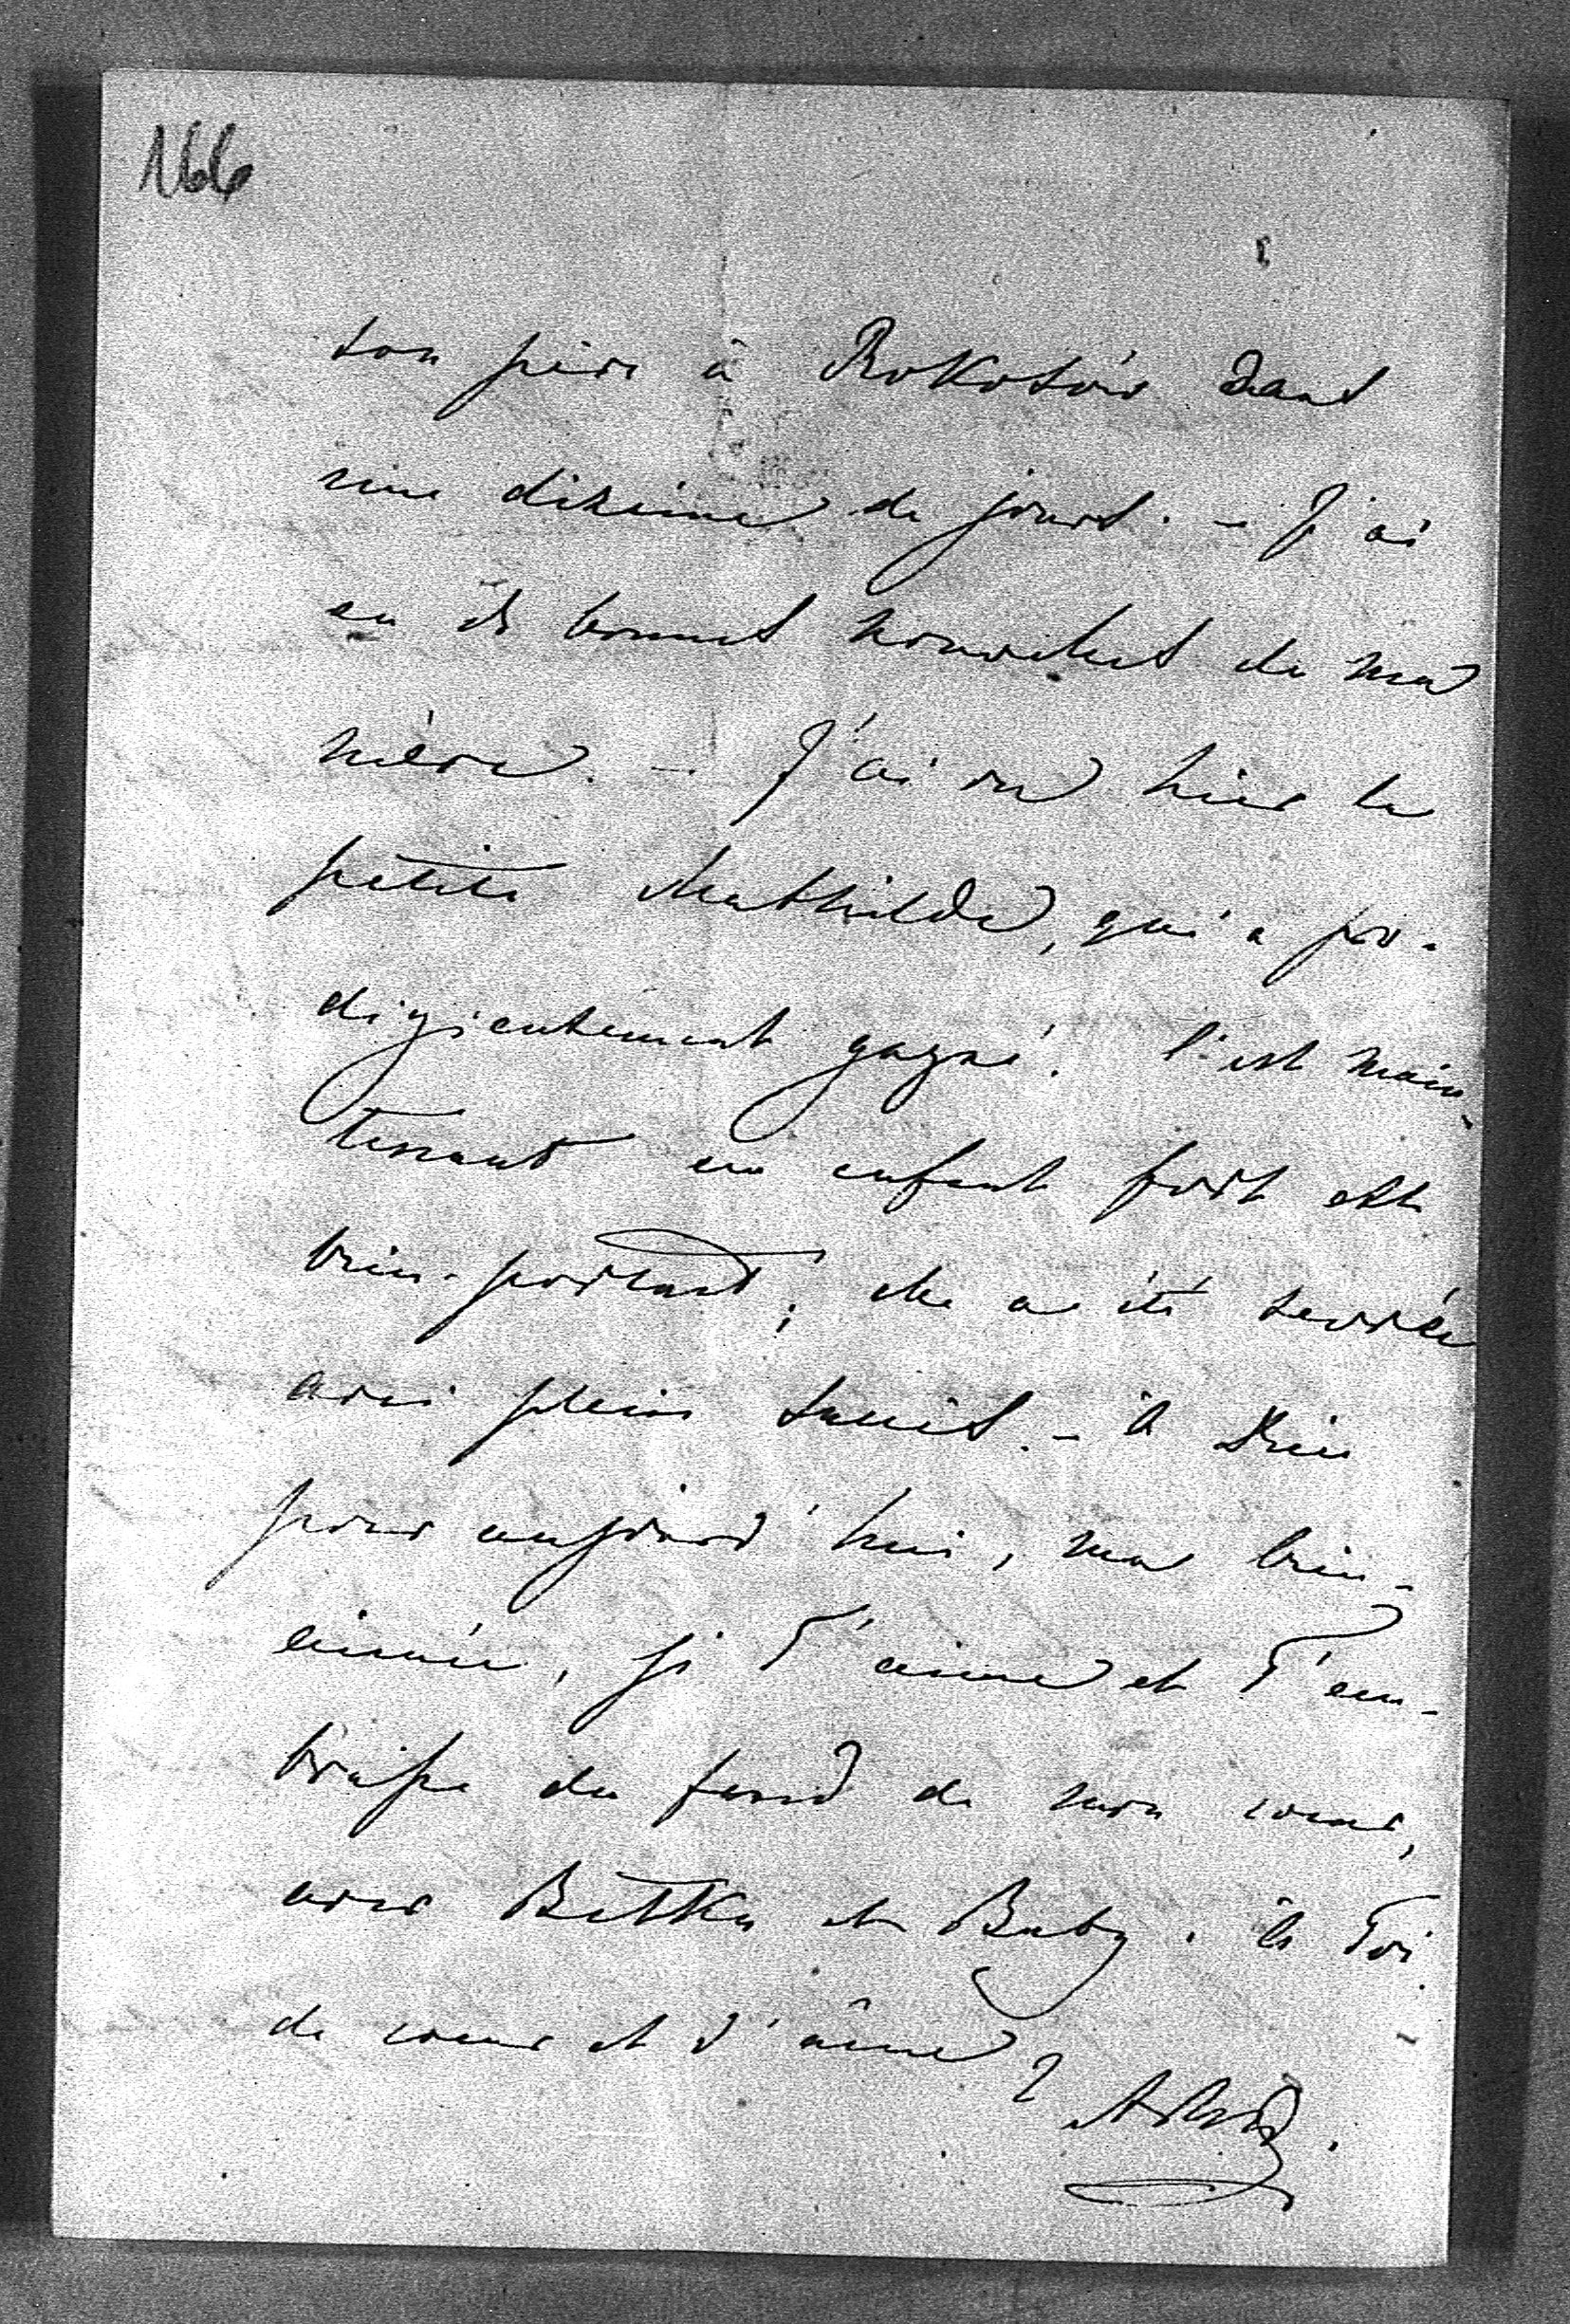 166
son père à Rokosow dans
une dizaine de jours. – J'ai
eu de bonnes nouvelles de ma
mère. – J'ai vu hier la
petite Mathilde, qui a pro-
digieusement gagné. C'est main-
tenant un enfant fort et
bien-portant; elle a été sevrée
avec plein succès. – à Dieu
pour aujourd'hui, ma bien-
aimée, je T'aime et T'em-
brasse du fond de mon coeur,
avec Bethka et Baby. à Toi
de coeur et d'âme